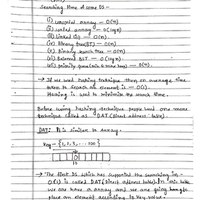 Searching time of some DS -
(i) unsorted array - O(n)
(ii) sorted array - O(log n)
(iii) Linked List - O(n)
(iv) Binary tree(BT) - O(n)
(v) Binary search tree - O(n)
(vi) Balanced BST - O(log n)
(vii) priority queue(min & max heap) - O(n)
→ If we use hashing technique then on average time
taken to search an element is - O(1).
Hashing is used to minimize the search time.
Before using hashing technique people used one more
technique called as DAT (Direct address table)
DAT: It is similar to array.
Key = {1, 2, 3, ... 100}
→ The first DS which has supported the searching in
O(1) is called DAT (Direct address table). In this table
we are have a array and we are going to
place an element according to key value.